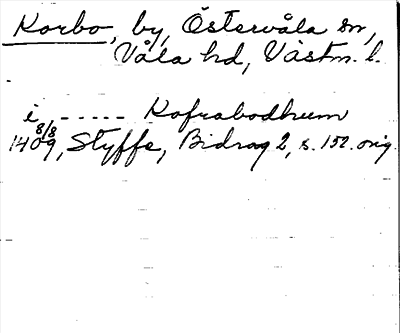 Korbo, by, Östervåla sn,
Våla hd, Västm. l.
i, ----- Kofrabodhum
8/8
1409, Styffe, Bidrag 2, s. 152. orig.